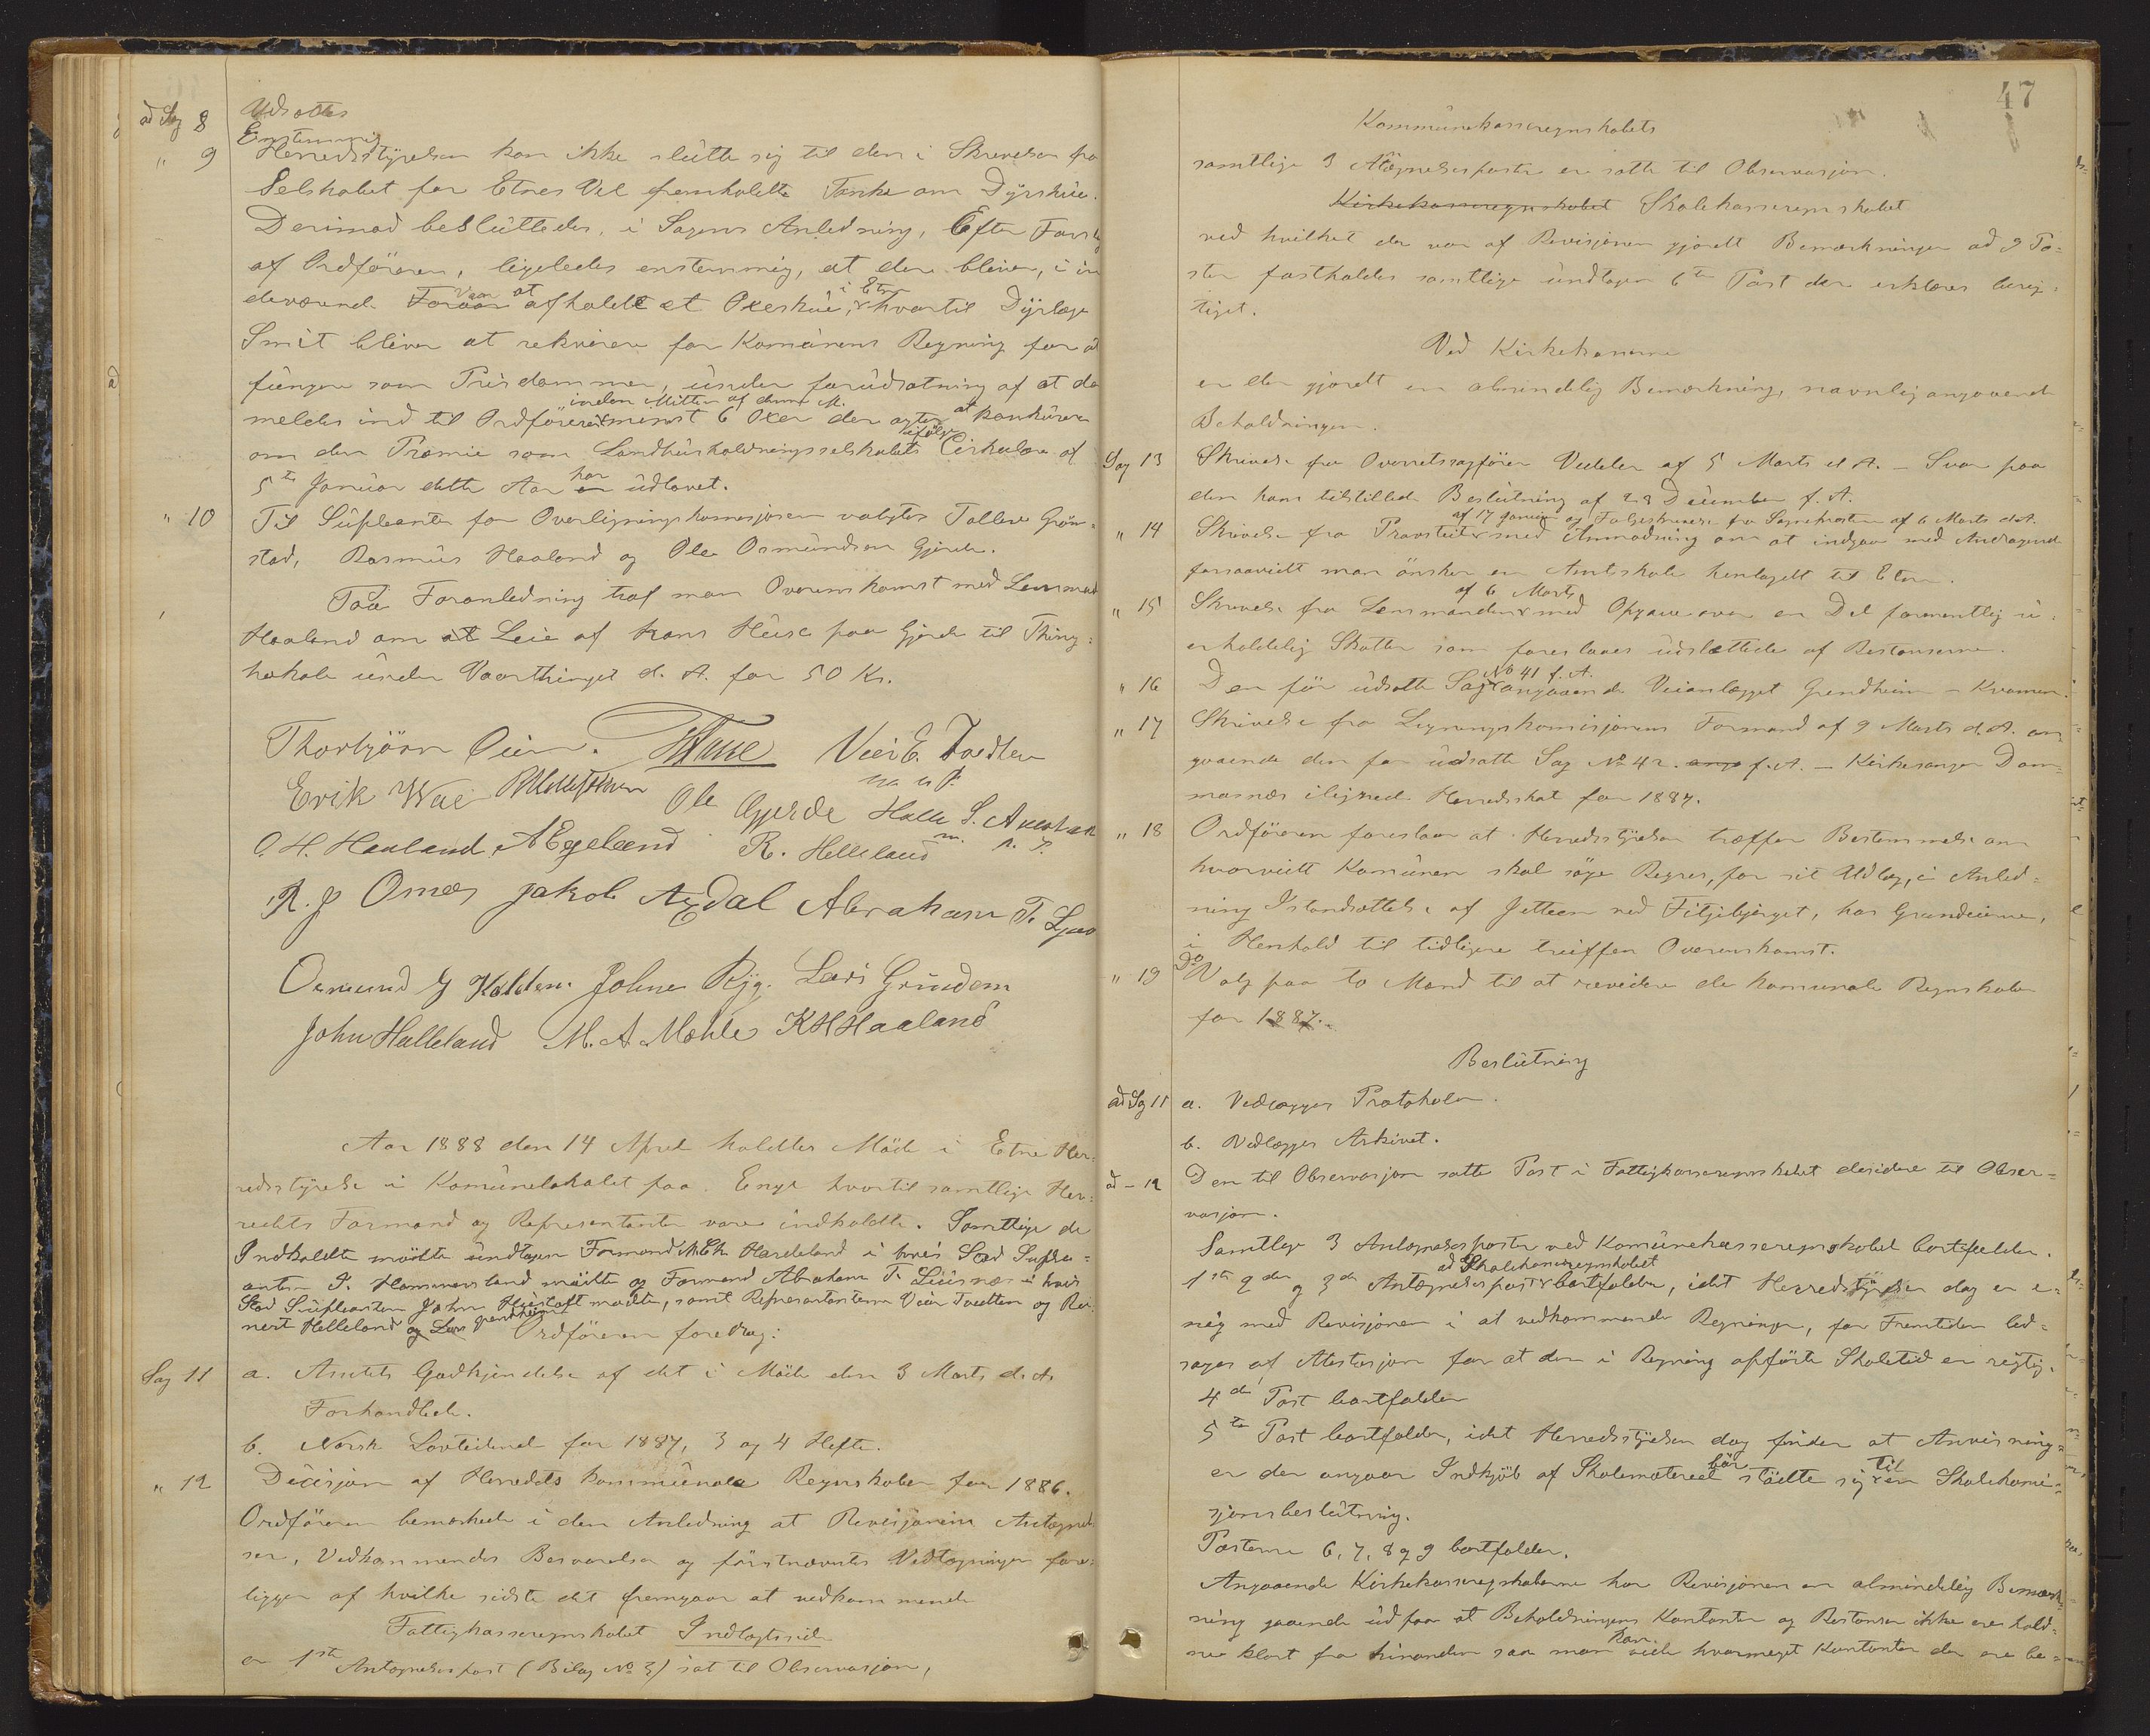 ad Sag 8 Udsættes
" 9 Enstemmig
Herredsstyrelsen kan ikke slutte sig til den i Skrivelsen fra
Selskabet for Etnes Vel fremholdte Tanke om Dyrskue.
Derimod besluttedes, i Sagens Anledning, Efter Forslag
af Ordföreren, ligeledes enstemmig, at der bliver, i in
deværende Vaar at afholdt et Oxeskue, i Etne hvortil Dyrlæge
Smit bliver at rekvirere for Komunens Regning for at
fungere som Prisdommer, under forudsætning af at de
meldes ind til Ordföreren inden Mitten af denne M. minst 6 Oxer der agter at konkurere
om den Præmie som Landhusholdningsselskabets ifölge Cirkulære af
5te Januar dette Aar har udlovet.
" 10 Til Supleanter for Overligningskomisjonen valgtes Tollev Grön-
stad, Rasmus Haaland og Ole Osmundsen Gjerde.
Paa Foranledning traf man Overenskomst med Lensmand
Haaland om at Leie af hans Huse paa Gjerde til Thing-
lokale under Vaarthinget d. A. for 50 Kr.
Thorbjörn Öien. Vier E. Tvedten
m. p. P.
Erik Wae Ole Gjerde Halle S.
m. p. P.
O. H. Haaland. A Egeland R. Helleland
R. J Omes Jakob Axdal Abraham T. Ljus
Osmund G Kolden. Johne Ryg. Lars Grindem
John Halleland M. A. Mæhle K H Haaland
Aar 1888 den 14 April holdtes Möde i Etne Her-
redsstyrelse i Komunelokalet paa Enge hvortil samtlige Her-
redets Formænd og Representanter vare indkaldte. Samtlige de
Indkaldte mödte undtagen Formand Hardeland i hvis Sted Suple-
anten P. Hammersland mödte og Formand Abraham T. Liusnæs i hvis
Sted Supleanten John Hustoft mødte, samt Representanterne Vier Tvedten og Rei-
nert Helleland og Lars Grindheim
Ordföreren foredrog:
Sag 11 a. Amtets Godkjendelse af det i Möde den 3 Marts d. A.
Forhandlede.
b. Norsk Lovtidende for 1887, 3 og 4 Hefte.
" 12 Decisjon af Herredets kommunale Regnskaber for 1886.
Ordföreren bemærkede i den Anledning at Revisjonens Antegnel-
ser, Vedkommendes Besvarelse og förstnævntes Vedtegninger fore-
ligger af hvilke sidste det fremgaar at vedkommende
Fattigkasseregnskabet Indtægtside
er 1ste Antegnelsespost (Bilag No 3) sat til Observasjon,
47
Kommunekasseregnskabets
samtlige 3 Antegnelsesposter er satte til Observasjon.
Kirkekasseregnskabet Skolekasseregnskabet
ved hvilket der var af Revisjonen gjordt Bemærkninger ad 9 Po-
ster fastholdes samtlige undtagen 6te Post der erklæres berig-
tiget.
Ved Kirkekasserne
er der gjordt en almindelig Bemærkning, navnlig angaaende
Beholdningen.
Sag 13 Skrivelse fra Overretssagförer Vedeler af 5 Marts d. A. – Svar paa
den ham tilstillede Beslutning af 28 December f. A.
" 14 Skrivelse fra Provsteit af 17 Januar og Fölgeskrivelse fra Sognepresten af 6 Marts d.A. med Anmodning om at indgaa med Andragende
forsaavidt man önsker en Amtskole henlagdt til Etne.
" 15 Skrivelse fra Lensmanden af 6 Marts med Opgave over en Del formentlig u-
erholdelig Skatter som foreslaaes udslettede af Restanserne.
" 16 Den för udsatte Sag No 41 f. A. angaaende Veianlægget Grindheim – Kvamen.
" 17 Skrivelse fra Ligningskomisjonens Formand af 9 Marts d. A. an-
gaaende den för udsatte Sag No 42. ang f. A. – Kirkesanger Dom-
masnes ilignede Herredsskat for 1887.
" 18 Ordföreren foreslaar at Herredsstyrelsen træffer Bestemmelse om
hvorvidt Komunen skal söge Regres, for sit Udlæg, i Anled-
ning Istandsættelse af Jetteen ved Fitjebjerget, hos Grundeierne,
i Henhold til tidligere truffen Overenskomst.
" 19 Do Valg paa to Mænd til at revidere de komunale Regnskaber
for 1887.
Beslutning
ad Sag 11 a. Vedlægges Protokolen.
b. Vedlægges Arkivet.
ad – 12 Den til Observasjon satte Post i Fattigkasseregnskabet desidere til Obser-
vasjon.
Samtlige 3 Antegnelsesposter ved Komunekasseregnskabet bortfalder.
1ste 2den og 3de Antegnelsespost ad Skolekasseregnskabet bortfalder, idet Herredsstyrelsen dog er e-
nig med Revisjonen i at vedkommende Regninger, for Fremtiden led-
sages af Atestasjon for at den i Regning opförte Skoletid er rigtig.
4de Post bortfalder
5te Post bortfalder, idet Herredsstyrelsen dog finder at Anvisning-
er der angaar Indkjöb af Skolemateriel bör stötte sig til en Skolekomi-
sjonsbeslutning.
Posterne 6, 7, 8 og 9 bortfalder.
Angaaende Kirkekasseregnskaberne har Revisjonen en almindelig Bemærk-
ning gaaende ud paa at Beholdningens Kontanter og Restanser ikke ere hold-
ne klart fra hinanden saa man kan vide hvormeget Kontanter der ere be-